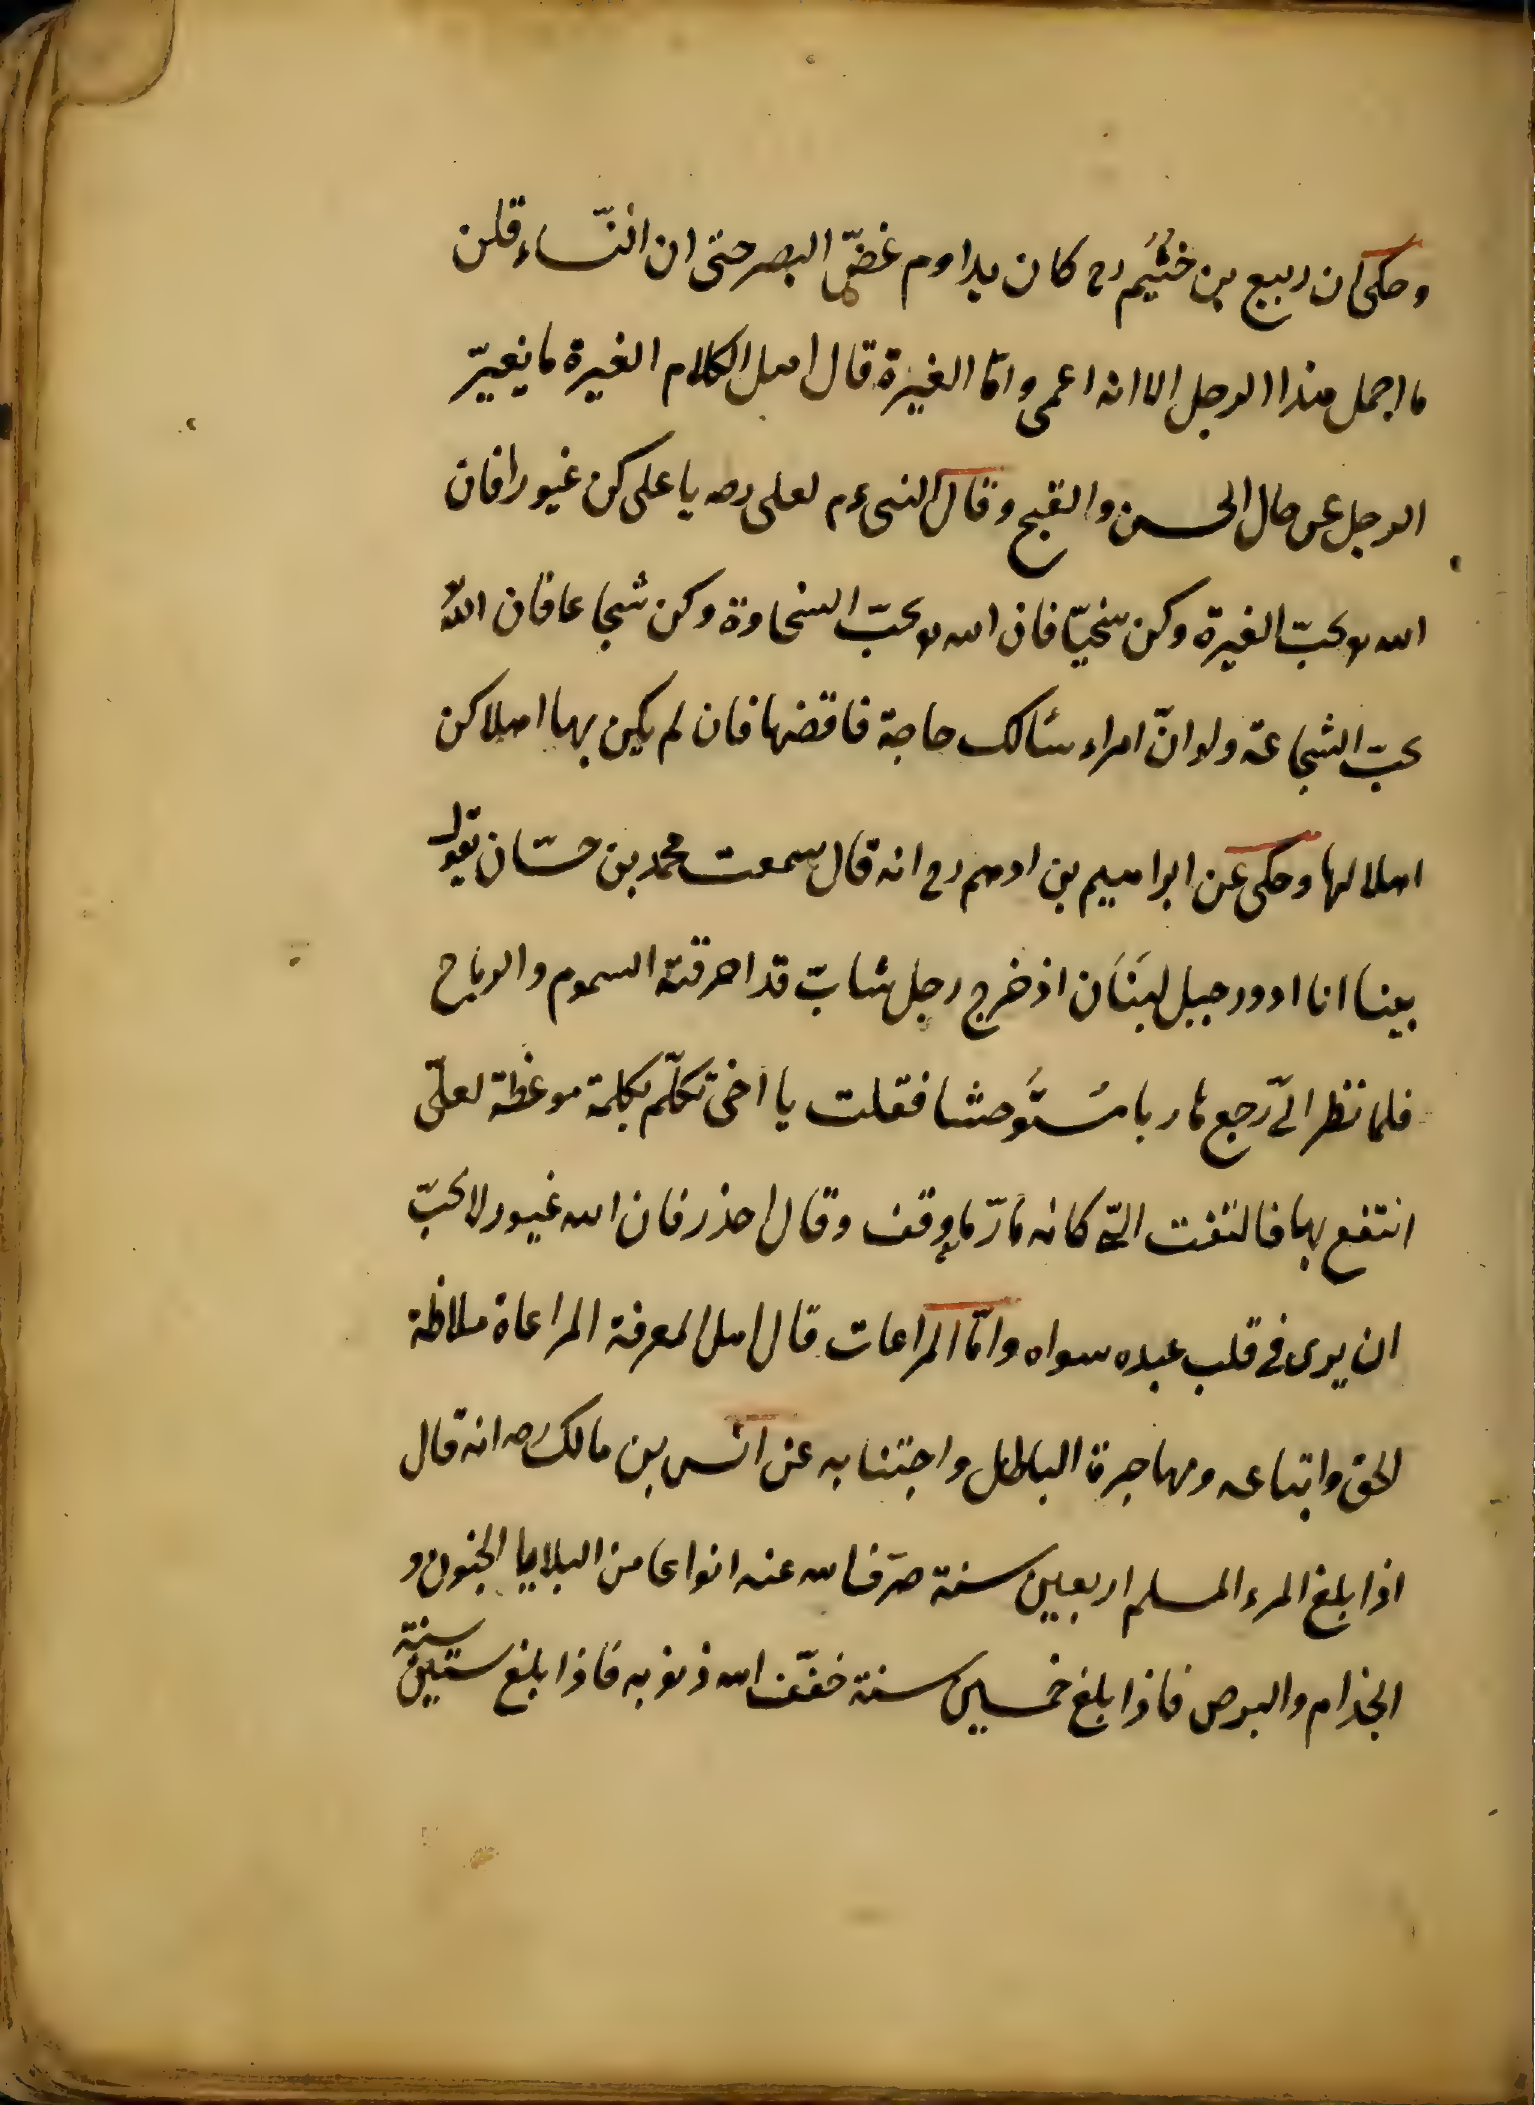 وحكى ان ربيع بن خثيم رح كان يداوم غضّ البصر حتى ان النّساء قلن
ما اجمل هذا الرجل الا انه اعمى وامّا الغيرة قال اهل الكلام الغيرة ما يغيّر
الرجل عن حال الحسن والقبح وقال النبى عم لعلى رضه يا على كن غيورا فان
الله يحبّ الغيرة وكن سخيّا فان الله يحبّ السخاوة وكن شجاعا فان الله
يحبّ الشجاعة ولو انّ امراء سألك حاجة فاقضها فان لم يكن بها اهلا كن
اهلا لها وحكى عن ابراهيم بن ادهم رح انه قال سمعت محمد بن حسّان يقول
بينا انا ادور جبل لبنَان اذ خرج رجل شابّ قد احرقته السموم والرياح
فلما نظر الىّ رجع هاربا مستوَحشا فقلت يا اخى تكلّم بكلمة موعظة لعلّى
انتفع بها فالتفت الىّ كانه مارّ ما وقف وقال احذر فان الله غيور لا يحبّ
ان يرى فى قلب عبده سواه وامّا المراعات قال اهل المعرفة المراعاة ملاحظة
الحق واتباعه ومهاجرة الباطل واجتنابه عن انس بن مالك رضه انه قال
اذا بلغ المرء المسلم اربعين سنة صرَف الله عنه انواعا من البلايا الجنون و
الجذام والبرص فاذا بلغ خمسين سنة خفّف الله ذنوبه فاذا بلغ ستين سنة